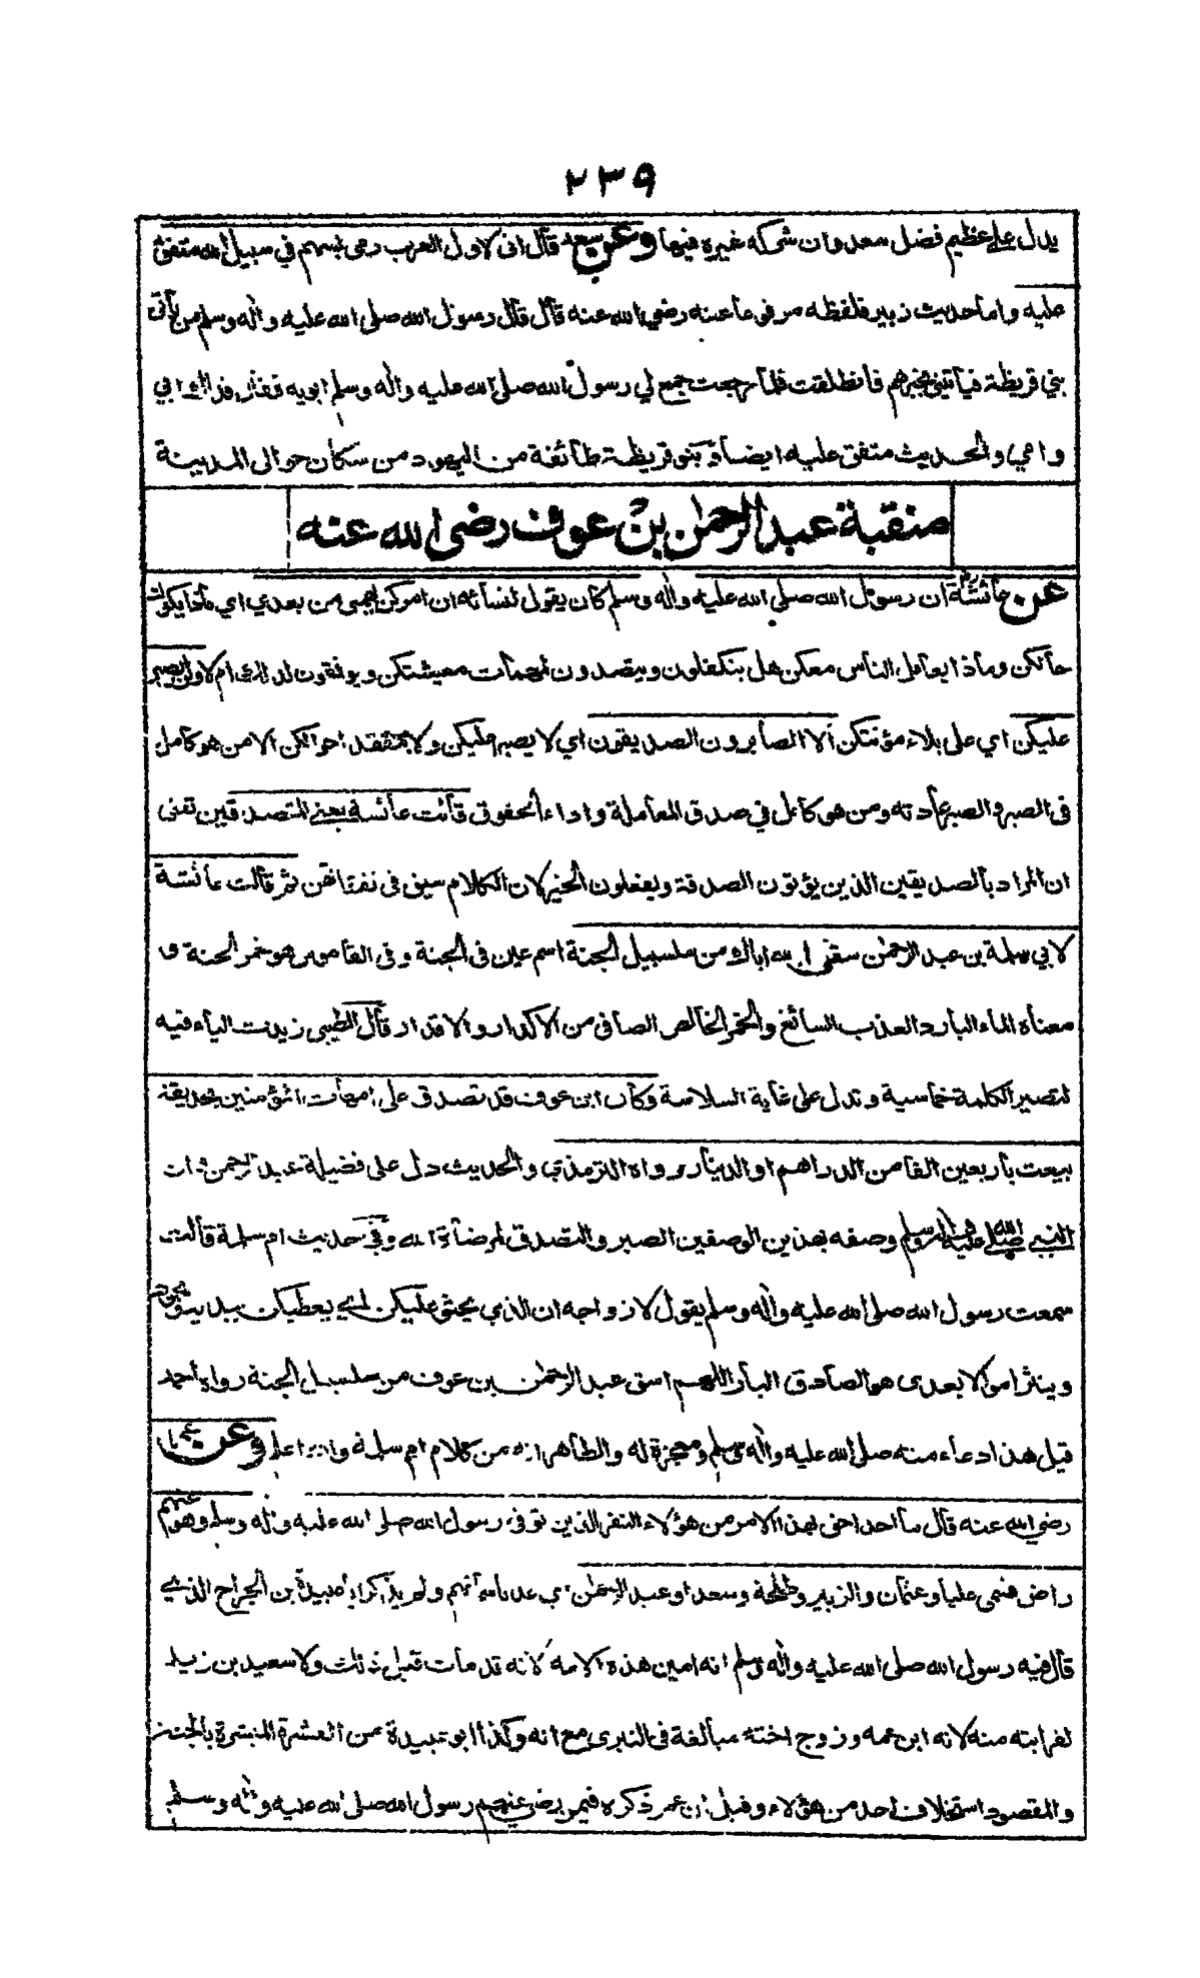 ٢٣٩
يدل على عظيم فضل سعد وان شركه غيره فيها وعن سعد قال انى لاول العرب رمى بسهم في سبيل الله متفق
عليه واما حديث زبير فلفظه مرفوعا عنه رضي الله عنه قال قال رسول الله صلى الله عليه واله وسلم من يأتى
بني قريظة فيأتينى بخبرهم فانطلقت فلما رجعت جمع لي رسول الله صلى الله عليه واله وسلم ابويه فقال فداك ابي
وامي والحديث متفق عليه ايضا وبنو قريظة طائفة من اليهود من سكان حوالى المدينة
منقبة عبد الرحمن بن عوف رضى الله عنه
عن عائشة رض ان رسول الله صلى الله عليه واله وسلم كان يقول لنسائه ان امركن مما من بعدي اي
حالكن وماذا يعامل الناس معكن هل يتكفلون ويتصدون لمهمات معيشتكن ويوفقون لذلك ام لا ولن يصبر
عليكن اي على بلاء مؤنتكن الا الصابرون الصديقون اي لا يصبر عليكن ولا يتفقد احوالكن الا من هو كامل
فى الصبر والصبر عادته ومن هو كامل في صدق المعاملة واداء الحقوق قالت عائشة يعني المتصدقين تعنى
ان المراد بالصديقين الذين يؤتون الصدقة ويفعلون الخير لان الكلام سيق فى نفقاتهن ثم قالت عائشة
لابي سلمة بن عبد الرحمن سقى الله اباك من سلسبيل الجنة اسم عين فى الجنة وفى القاموس هو خمر الجنة و
معناه الماء البارد العذب السائغ والخمر الخالص الصافى من الاكدار والاقذار قال الطيبى زيدت الياء فيه
لتصير الكلمة خماسية وتدل على غاية السلاسة وكان ابن عوف قد تصدق على امهات المؤمنين بحديقة
بيعت باربعين الفا من الدراهم او الدينار رواه الترمذي والحديث دل على فضيلة عبد الرحمن وان
النبي صلى الله عليه واله وسلم وصفه بهذين الوصفين الصبر والتصدق لمرضاة الله وفي حديث ام سلمة قالت
سمعت رسول الله صلى الله عليه واله وسلم يقول لازواجه ان الذي يحثو عليكن اي يعطيكن بيديه ويجود
وينثر اموالا بعدى هو الصادق البار اللهم اسق عبد الرحمن بن عوف من سلسبيل الجنة رواه احمد
قيل هذا دعاء منه صلى الله عليه واله وسلم ومعجزة له والظاهر انه من كلام ام سلمة والله اعلم وعن
رضي الله عنه قال ما احد احق بهذا الامر من هؤلاء النفر الذين توفى رسول الله صلى الله عليه واله وسلم وهو عنهم
راض فسمى عليا وعثمان والزبير وطلحة وسعدا وعبد الرحمن ولم يذكر ابا عبيدة بن الجراح الذي
قال فيه رسول الله صلى الله عليه واله وسلم انه امين هذه الامه لانه قد مات قبل ذلك ولا سعيد بن زيد
لقرابته منه لانه ابن عمه وزوج اخته مبالغة فى التبرى مع انه وكذا ابو عبيدة من العشرة المبشرة بالجنة
والمقصود استخلاف احد من هؤلاء وقيل ان عمر ذكره فيمن رضي عنهم رسول الله صلى الله عليه واله وسلم